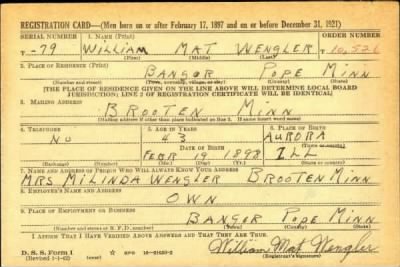 REGISTRATION CARD—(Men born on or after February 17, 1897 and on or before December 31, 1921)
SERIAL NUMBER 1. NAME (Print) ORDER NUMBER
T-79 WILLIAM MAT WENGLER T10,526
(First) (Middle) (Last)
2. PLACE OF RESIDENCE (Print)
BANGOR POPE MINN
(Number and street) (Town, township, village, or city) (County) (State)
[THE PLACE OF RESIDENCE GIVEN ON THE LINE ABOVE WILL DETERMINE LOCAL BOARD
JURISDICTION; LINE 2 OF REGISTRATION CERTIFICATE WILL BE IDENTICAL]
3. MAILING ADDRESS
BROOTEN MINN
[Mailing address if other than place indicated on line 2. If same insert word same]
4. TELEPHONE 5. AGE IN YEARS 6. PLACE OF BIRTH
No 43 AURORA
DATE OF BIRTH (Town or county)
FEBR 19 1898 ILL
(Exchange) (Number) (Mo.) (Day) (Yr.) (State or country)
7. NAME AND ADDRESS OF PERSON WHO WILL ALWAYS KNOW YOUR ADDRESS
MRS MILINDA WENGLER BROOTEN MINN
8. EMPLOYER'S NAME AND ADDRESS
OWN
9. PLACE OF EMPLOYMENT OR BUSINESS
BANGOR POPE MINN
(Number and street or R. F. D. number) (Town) (County) (State)
I AFFIRM THAT I HAVE VERIFIED ABOVE ANSWERS AND THAT THEY ARE TRUE.
D. S. S. Form 1 William Mat Wengler
(Revised 1-1-42) GPO (Registrant's signature)